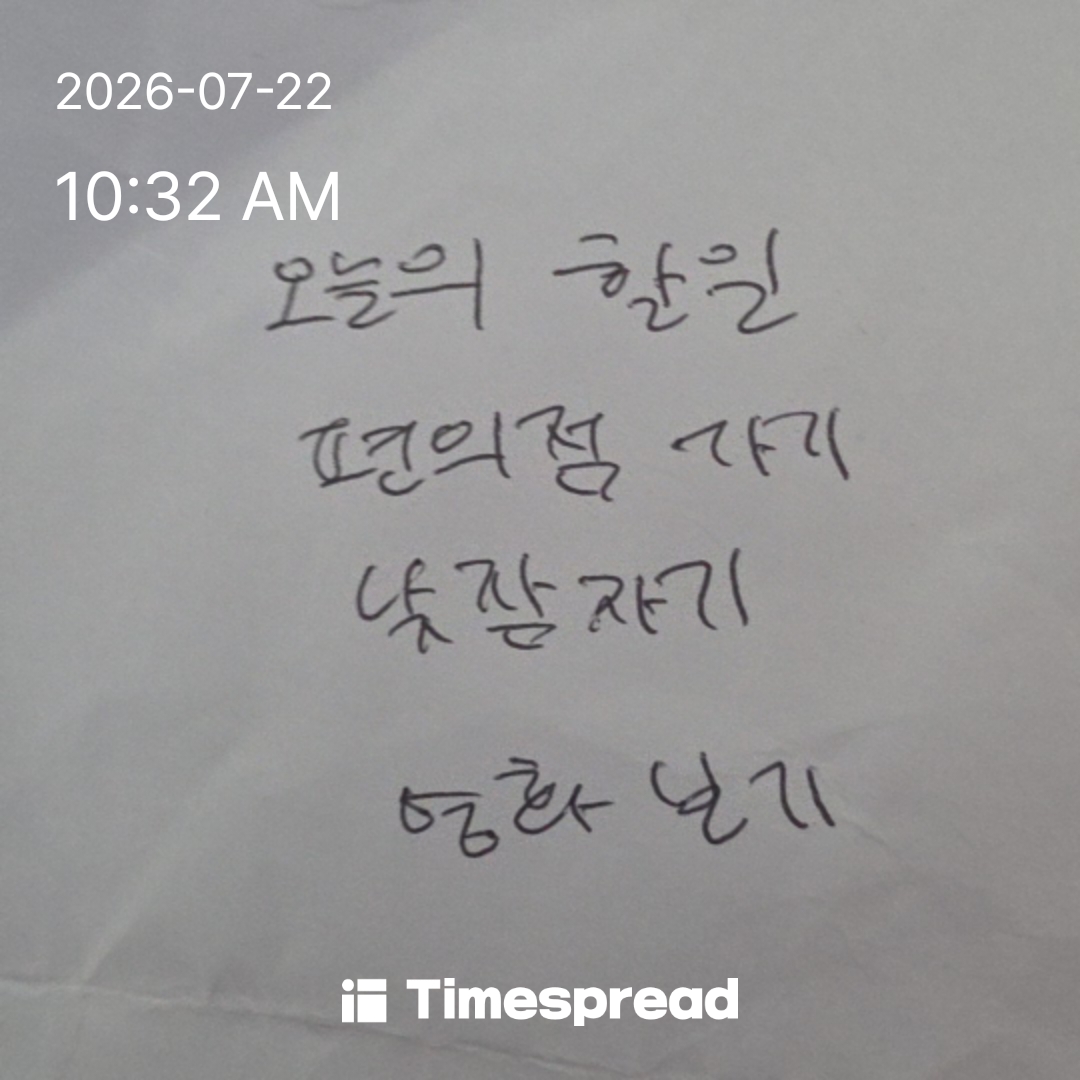 2026-07-22
10:32 AM
오늘의 할일
편의점 가기
낮잠자기
영화 보기
Timespread